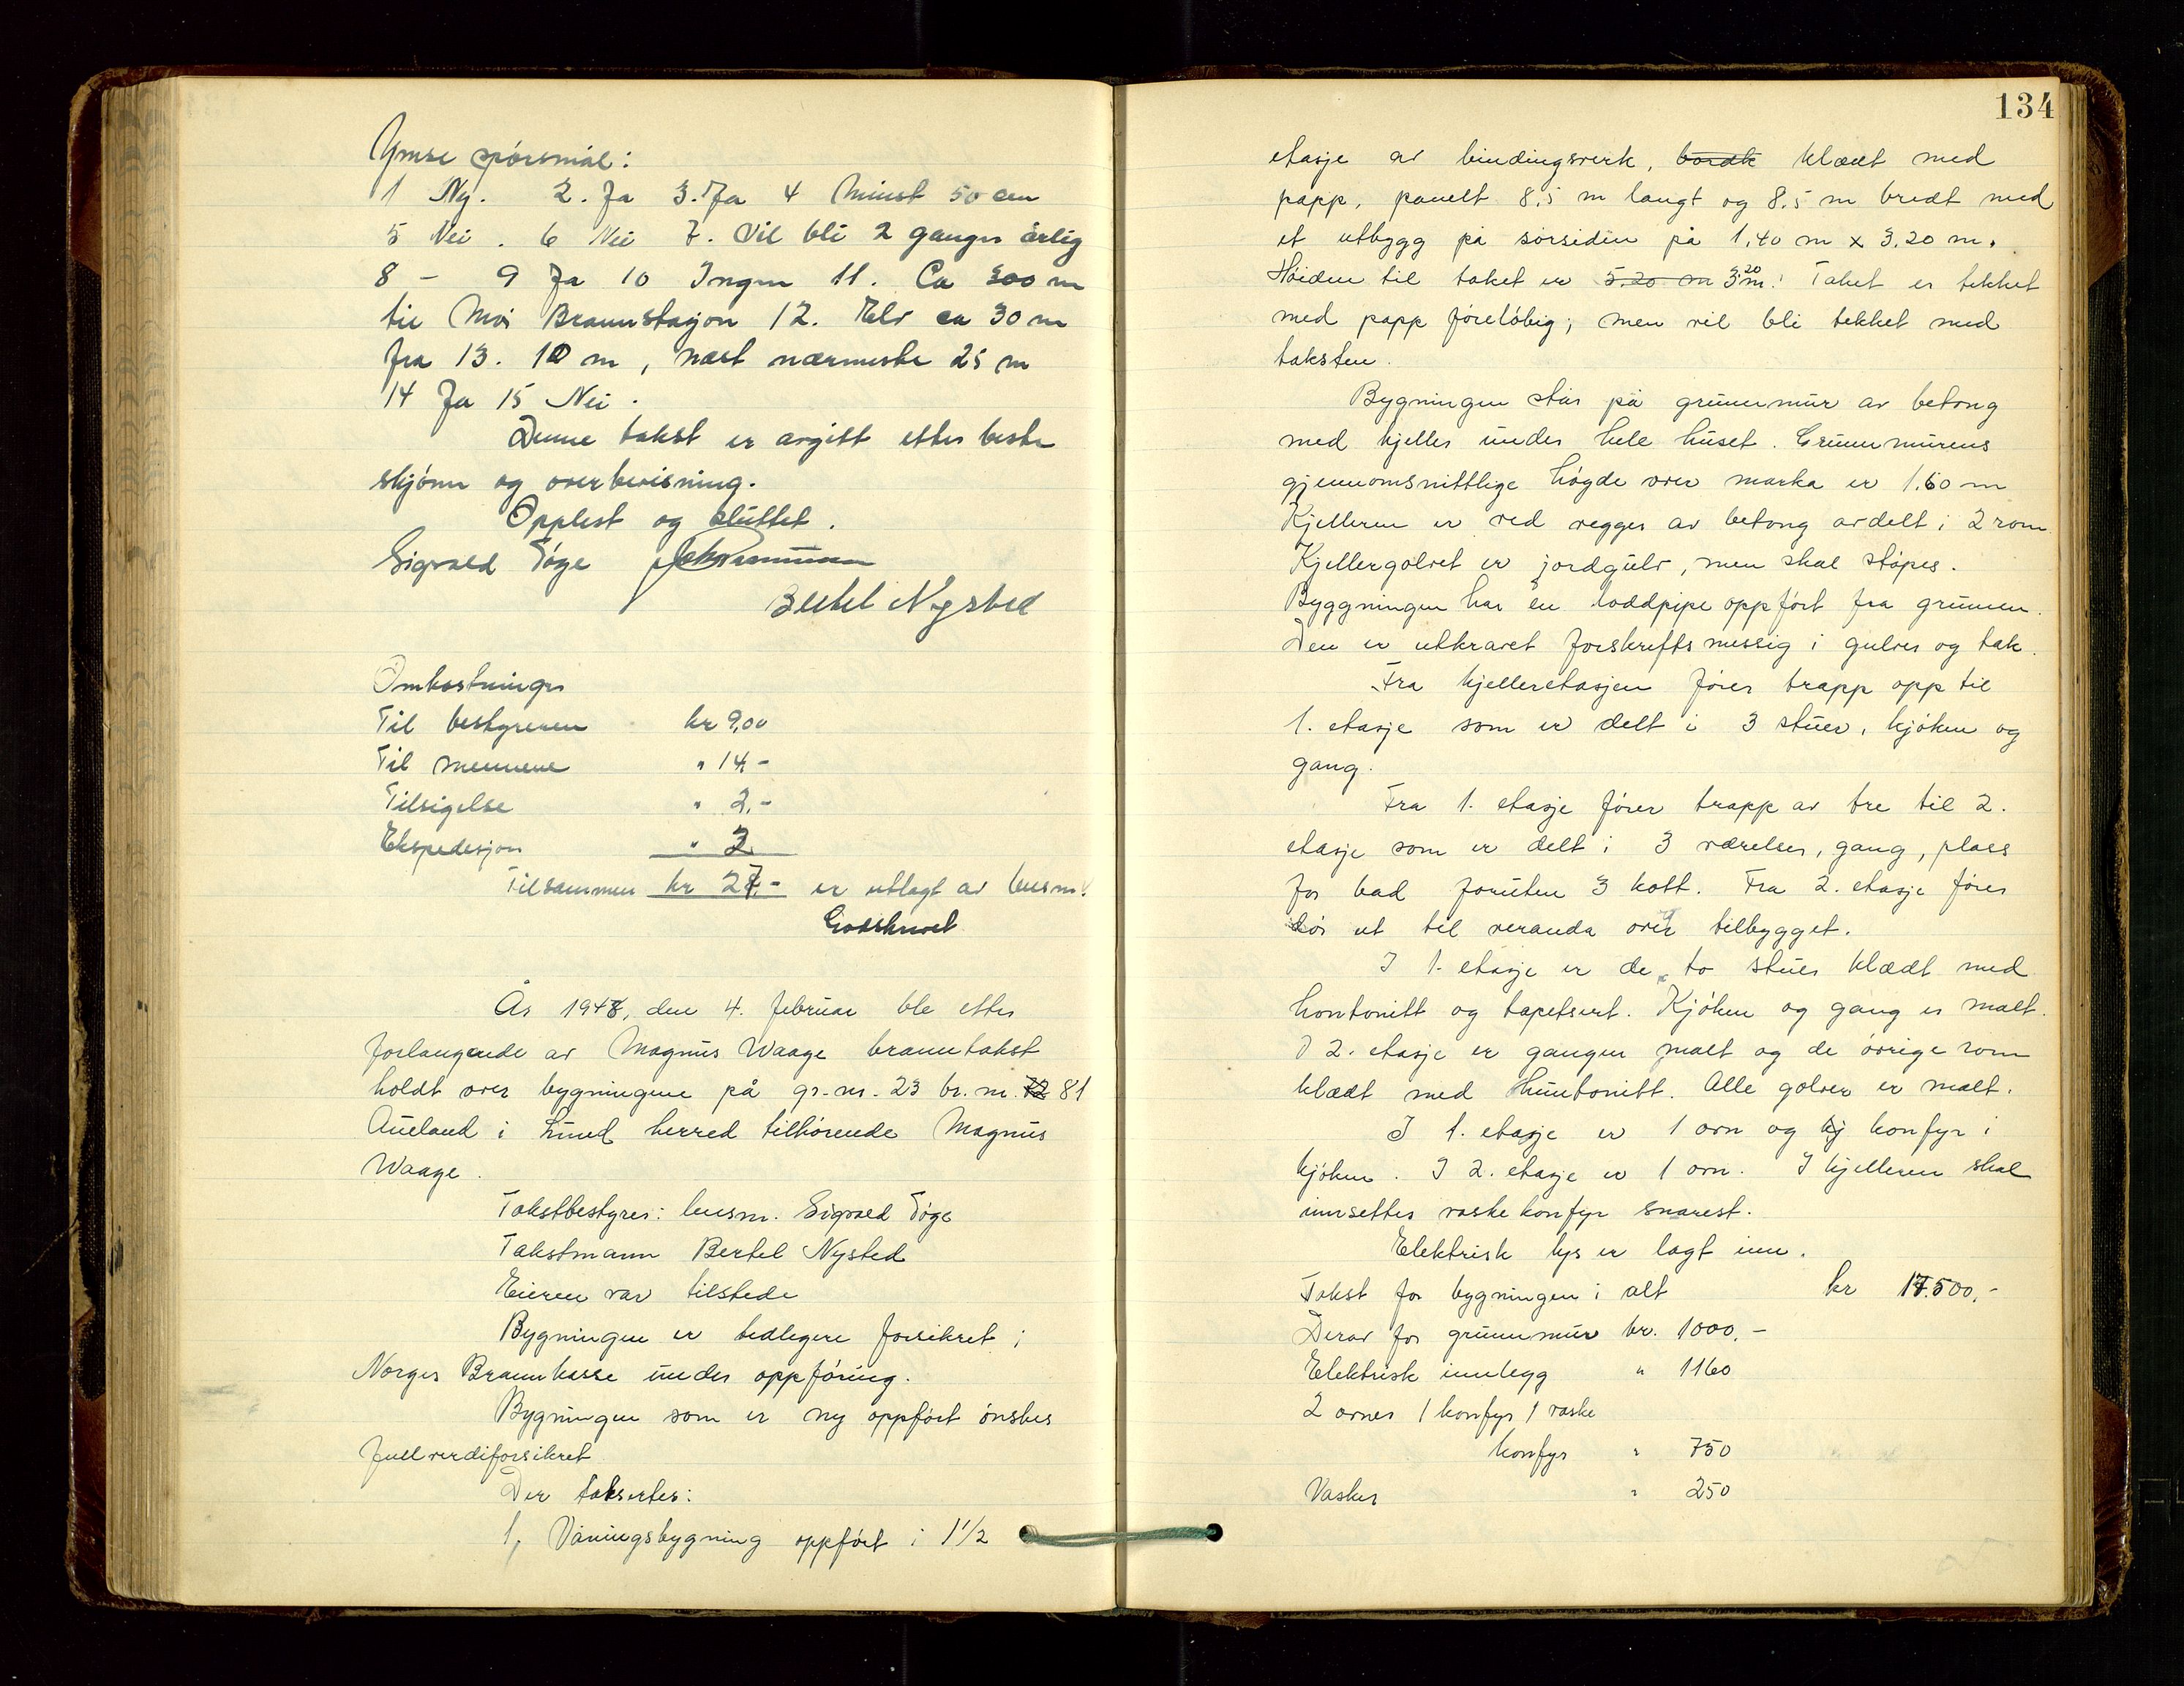 Ymse spørsmål:
1 Ny. 2. Ja 3. Ja 4 Minst 50 cm
5 Nei. 6 Nei 7. Vil bli 2 ganger årlig
8 - 9 Ja 10 Ingen 11. Ca 300 m
til Moi Brannstasjon 12. Elv ca 30 m
fra 13. 10 m, næst nærmeste 25 m
14 Ja 15 Nei.
Denne takst er avgitt etter beste
skjønn og overbevisning.
Opplest og sluttet.
Sigvald Tøge
Bertel Nysted
Omkostninger
Til bestyreren kr 9,00
Til mennene " 14,-
Tilsigelse " 2,-
Ekspedisjon " 2
Tilsammen kr 27,- er utlagt av lensm.
Godskrevet
År 1948, den 4. februar ble etter
forlangende av Magnus Waage branntakst
holdt over bygningene på gr.nr. 23 br.nr. 72 81
Aueland i Lund herred tilhørende Magnus
Waage.
Takstbestyrer: lensm. Sigvald Tøge
Takstmann Bertel Nysted
Eieren var tilstede
Bygningen er tidligere forsikret i
Norges Brannkasse under oppføring.
Bygningen som er ny oppført ønskes
fullverdiforsikret
Der taksertes:
1, Våningsbygning oppført i 1 1/2
134
etasje av bindingsverk, bordk klædt med
papp, panelt 8,5 m langt og 8.5 m bredt med
et utbygg på sørsiden på 1,40 m x 3,20 m.
Høiden til taket er 5.20 m 3.20 m. Taket er tekket
med papp foreløbig; men vil bli tekket med
taksten.
Bygningen står på grunnmur av betong
med kjeller under hele huset. Grunnmurens
gjennomsnittlige høgde over marka er 1.60 m
Kjelleren er ved vegger av betong avdelt i 2 rom
Kjellergolvet er jordgulv, men skal støpes.
Byggningen har en loddpipe oppført fra grunnen.
Den er utkravet forskriftsmessig i gulver og tak.
Fra kjelleretasjen fører trapp opp til
1. etasje som er delt i 3 stuer, kjøken og
gang.
Fra 1. etasje fører trapp av tre til 2.
etasje som er delt i 3 værelser, gang, plass
for bad foruten 3 kott. Fra 2. etasje fører
dør ut til veranda over tilbygget.
I 1. etasje er de to stuer klædt med
hontonitt og tapetsert. Kjøken og gang er malt.
I 2. etasje er gangen malt og de øvrige rom
klædt med Huntonitt. Alle golver er malt.
I 1. etasje er 1 ovn og kj konfyr i
kjøken. I 2. etasje er 1 ovn. I kjelleren skal
innsettes vaskekonfyr snarest.
Elektrisk lys er lagt inn.
Takst for bygningen i alt kr 17.500,-
Derav for grunnmur kr. 1000,-
Elektrisk innlegg " 1160
2 ovner 1 konfyr 1 vaske
konfyr " 750
Vasker " 250